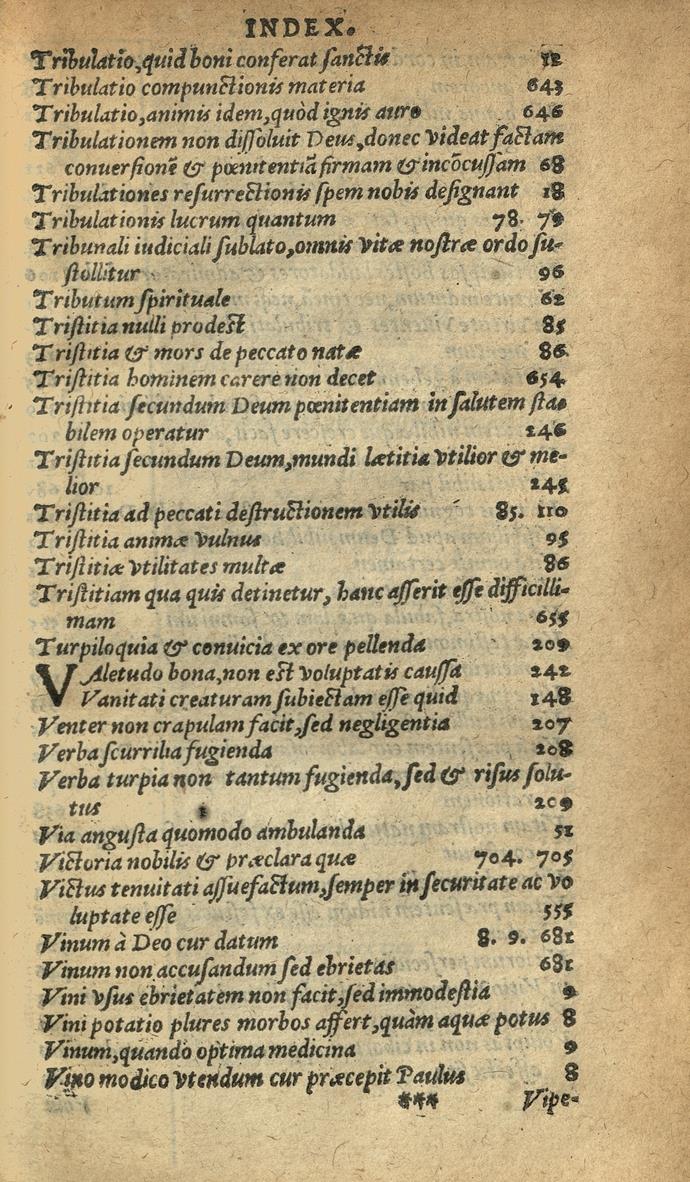 INDEX.
Tribulatio, quid boni conferat sanctis 12
Tribulatio compunctionis materia 643
Tribulatio, animis idem, quòd ignis auro 646
Tribulationem non dissoluit Deus, donec videat factam
conuersionē & pœnitentiā firmam & incōcussam 68
Tribulationes resurrectionis spem nobis designant 18
Tribulationis lucrum quantum 78. 79
Tribunali iudiciali sublato, omnis vitæ nostræ ordo su-
stollitur 96
Tributum spirituale 62
Tristitia nulli prodest 85
Tristitia & mors de peccato natæ 86
Tristitia hominem carere non decet 654
Tristitia secundum Deum pœnitentiam in salutem sta-
bilem operatur 246
Tristitia secundum Deum, mundi lætitia vtilior & me-
lior 245
Tristitia ad peccati destructionem vtilis 85. 110
Tristitia animæ vulnus 95
Tristitiæ vtilitates multæ 86
Tristitiam qua quis detinetur, hanc asserit esse difficilli-
mam 655
Turpiloquia & conuicia ex ore pellenda 209
VAletudo bona, non est voluptatis caussa 242
Vanitati creaturam subiectam esse quid 148
Venter non crapulam facit, sed negligentia 207
Verba scurrilia fugienda 208
Verba turpia non tantum fugienda, sed & risus solu-
tus 209
Via angusta quomodo ambulanda 52
Victoria nobilis & præclara quæ 704. 705
Victus tenuitati assuefactum, semper in securitate ac vo
luptate esse 555
Vinum à Deo cur datum 8. 9. 681
Vinum non accusandum sed ebrietas 681
Vini vsus ebrietatem non facit, sed immodestia 9
Vini potatio plures morbos affert, quàm aquæ potus 8
Vinum, quando optima medicina 9
Vino modico vtendum cur præcepit Paulus 8
*** Vipe-